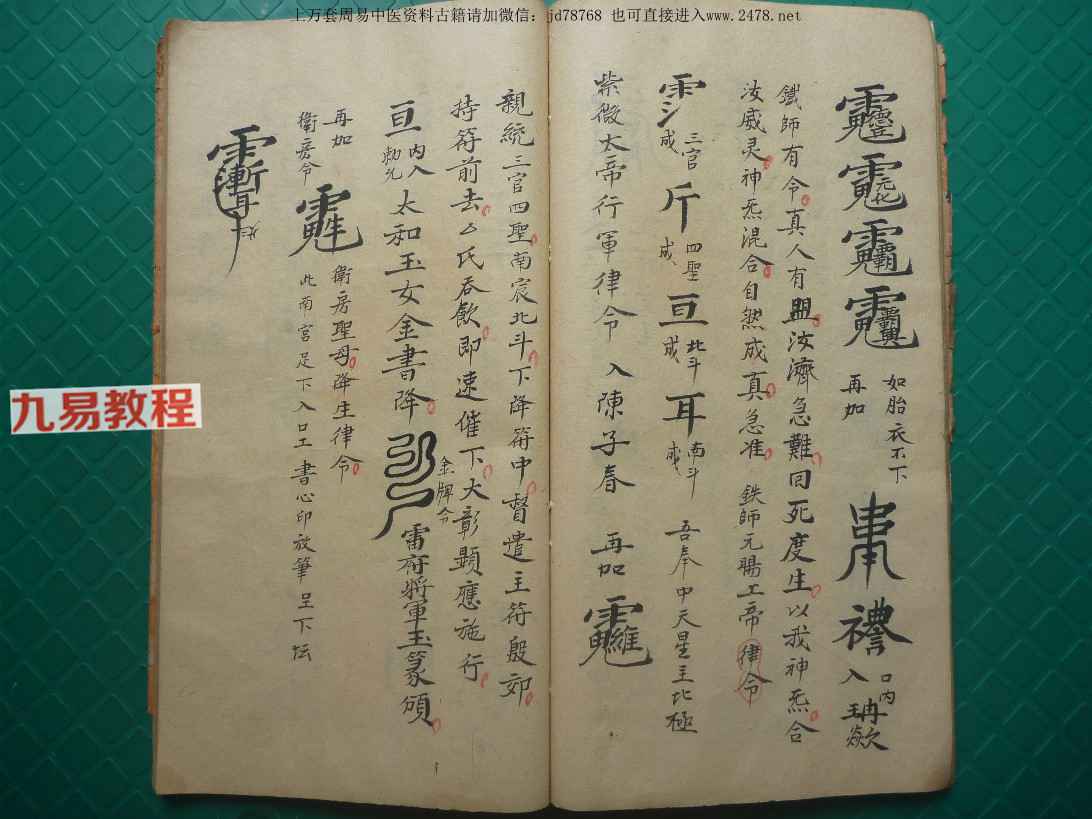 上万套周易中医资料古籍请加微信：jd78768 也可直接进入www.2478.net
九易教程
如胎衣不下
再加
入
口内
鐵師有令真人有盟汝濟急難回死度生以我神炁合
汝威灵神炁混合自然成真急准 鉄師元賜工帝律令
三官
成
斤
四聖
成
亘
北斗
成
耳
南斗
成
吾奉中天星主北極
紫微大帝行軍律令 入陳子春 再加
親統三官四聖南宸北斗下降符中督遣主符殷郊
持符前去厶氏吞飲即速催下大彰顯應施行
金牌令
亘
内入
勅允
太和玉女金書降
雷府將軍玉篆頒
再加
衛房聖母降生律令
衛房令
此南宮足下入口工書心印放筆呈下坛